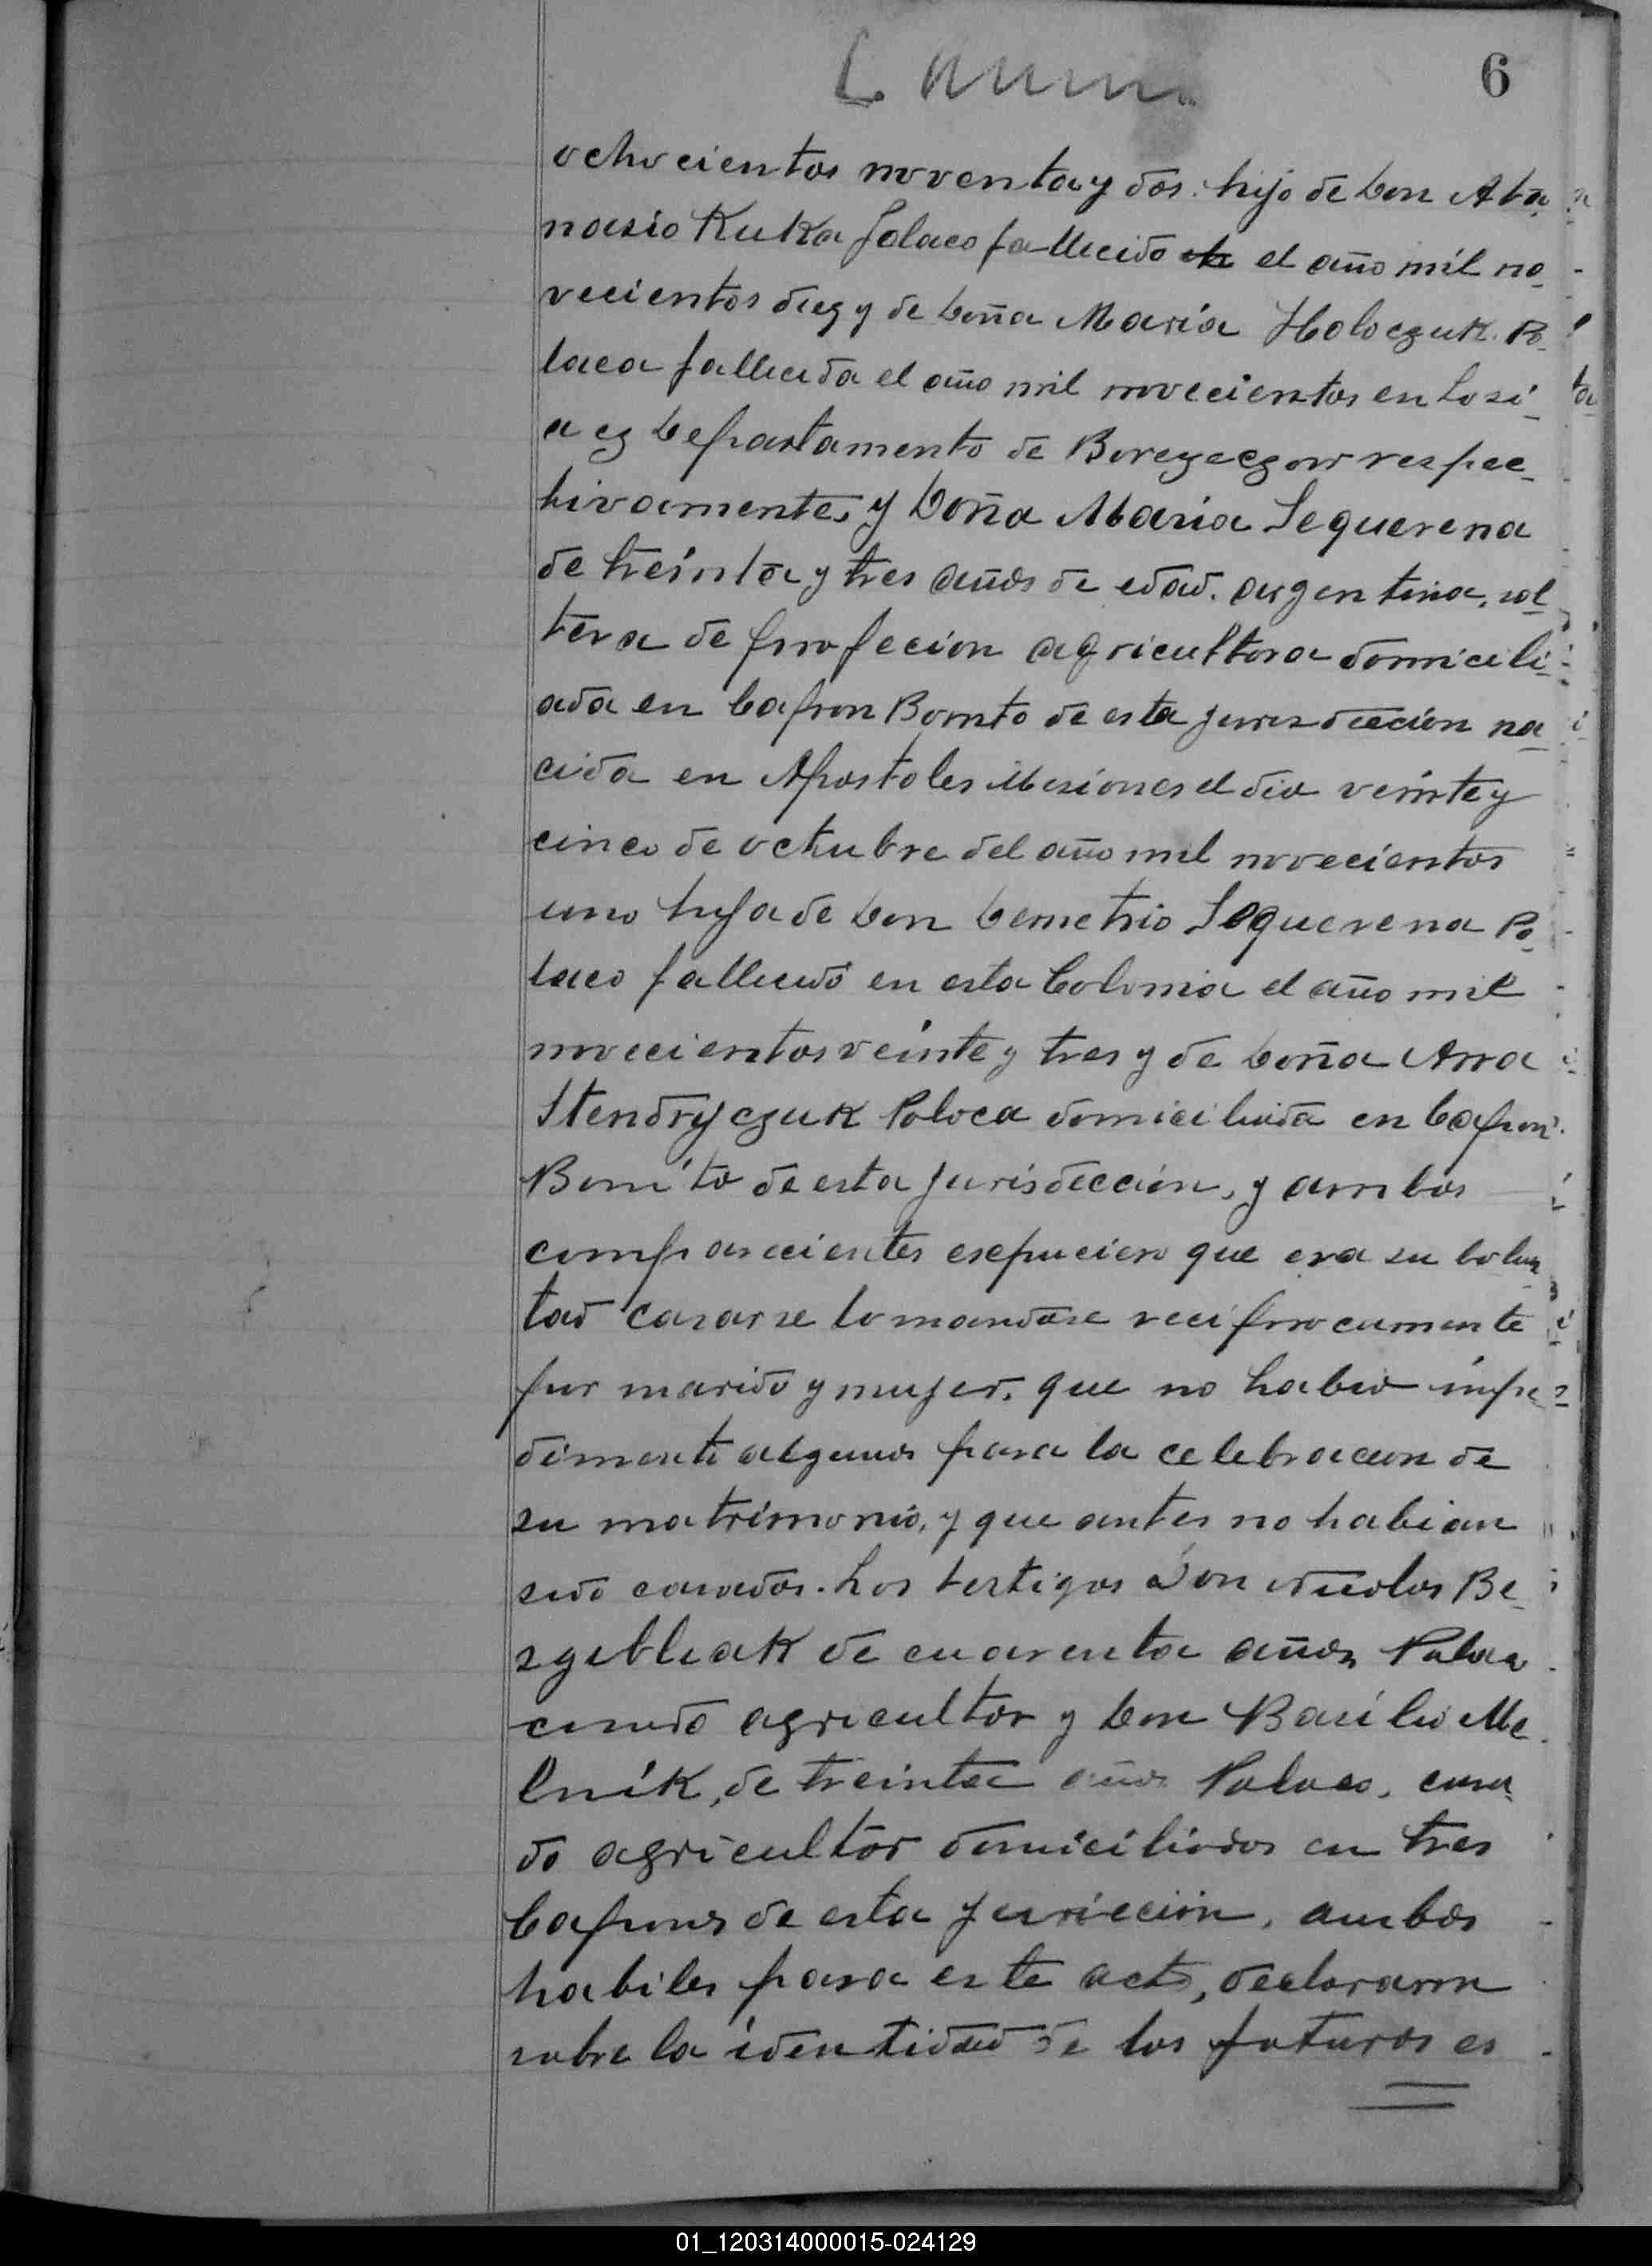 6
ochocientos noventa y dos. hijo de Don Ata-
nasio Kuka Polaco fallecido el año mil no-
vecientos diez y de Doña Maria Holoczuk. Po-
laca fallecida el año mil novecientos en Losi-
acz Departamento de Boreyeczow respec-
tivamente, y Doña Maria Sequerena
de treinta y tres años de edad. argentina, sol-
tera de profecion agricultora domicili-
ada en Capon Bonito de esta jurisdiccion na-
cida en Apostoles Misiones el dia veinte y
cinco de octubre del año mil novecientos
uno hija de Don Demetrio Sequerena Po-
laco fallecido en esta Colonia el año mil
novecientos veinte y tres y de Doña Ana
Stendryczuk Polaca domiciliada en Capon
Bonito de esta jurisdiccion, y ambos
comparecientes que era su bolun
tad casarse tomandose reciprocamente
por marido y mujer, que no habia inpe
dimento algunos para la celebracion de
su matrimonio, y que antes no habian
sido casados. Los testigos Don Nicolas Be-
zgibliak de cuarenta años, Polaco
casado agricultor y Don Basilio Me-
lnik, de treinta años Polaco, casa-
do agricultor domiciliados en tres
Capones de esta juriccion, ambos
habiles para este acto, declararon
sobre la identidad de los futuros es
01_120314000015-024129